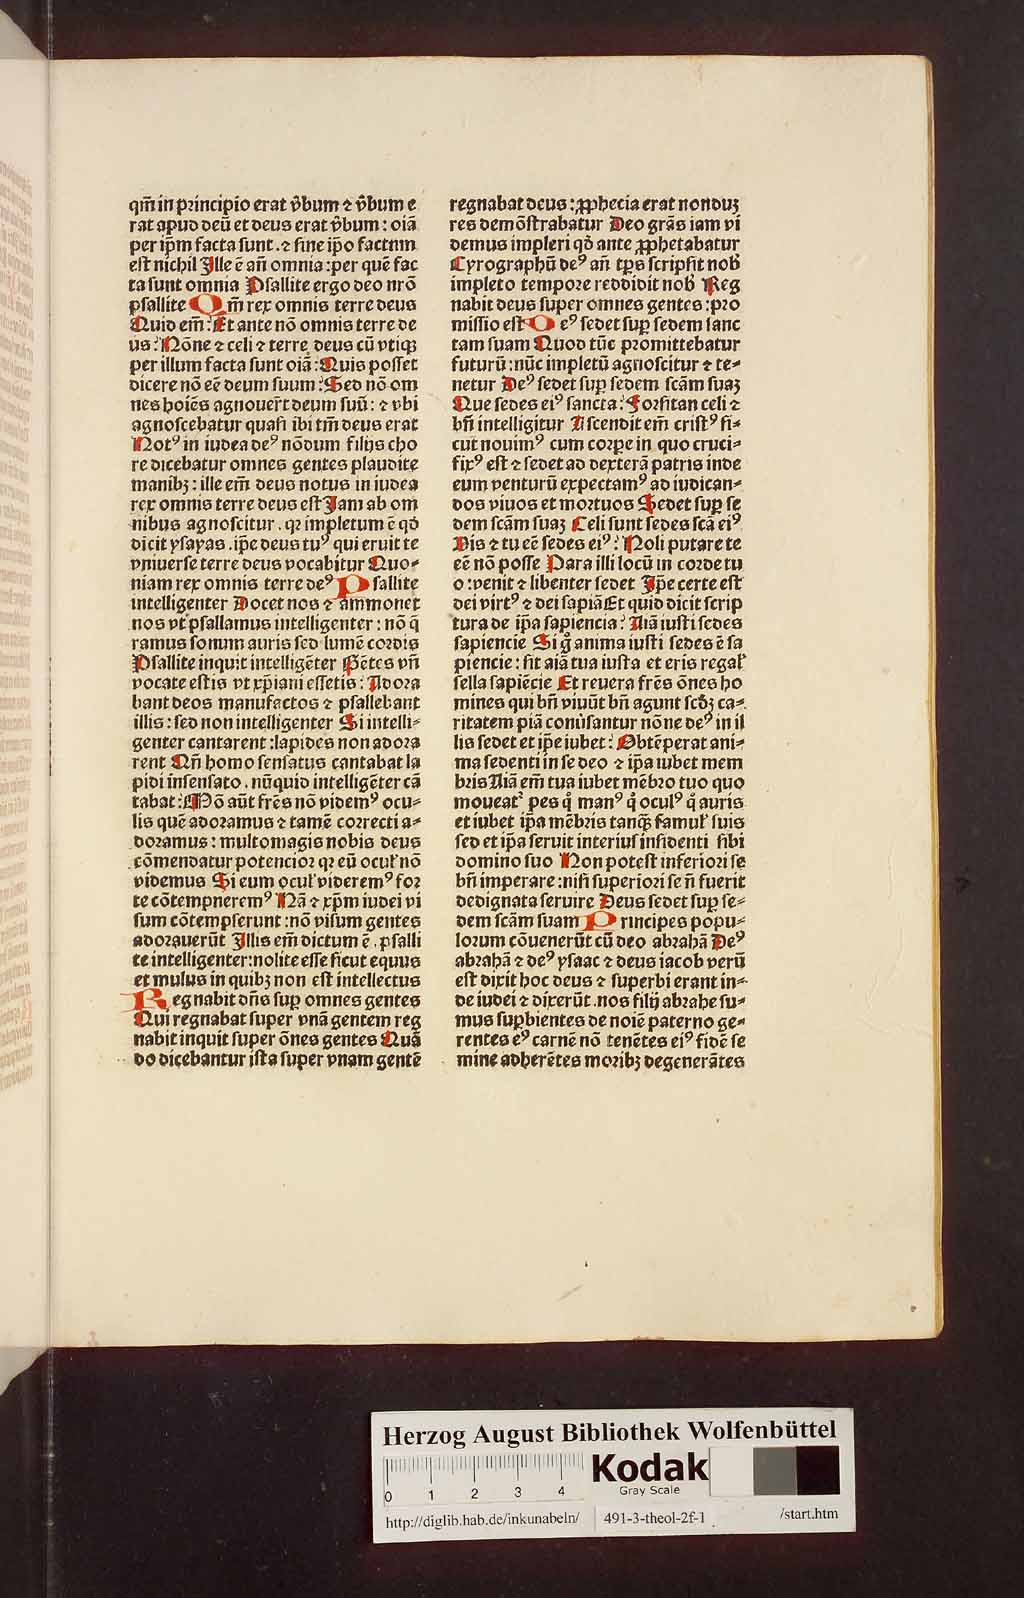 qm̄ in principio erat v̄bum ⁊ v̄bum e
rat apud deū et deus erat v̄bum : oīa
per ip̄m facta sunt . ⁊ sine ip̄o factnm
est nichil Ille ē an̄ omnia : per quē fac
ta sunt omnia Psallite ergo deo nr̄o
psallite Qm̄ rex omnis terre deus
Quid em̄ : Et ante nō omnis terre de
us : Nōne ⁊ celi ⁊ terre deus cū vtiqꝫ
per illum facta sunt oīa : Quis posset
dicere nō eē deum suum : Sed nō om
nes hoīes agnouer̄t deum suū : ⁊ vbi
agnoscebatur quasi ibi tm̄ deus erat
Notꝰ in iudea deꝰ nōdum filijs cho
re dicebatur omnes gentes plaudite
manibꝫ : ille em̄ deus notus in iudea
rex omnis terre deus est Jam ab om
nibus agnoscitur . qꝛ impletum ē qd̄
dicit ysayas . ip̄e deus tuꝰ qui eruit te
vniuerse terre deus vocabitur Quo⸗
niam rex omnis terre deꝰ Psallite
intelligenter Docet nos ⁊ ammonet
nos vt psallamus intelligenter : nō q̄
ramus sonum auris sed lumē cordis
Psallite inquit intelligēter Gētes vn̄
vocate estis vt xp̄iani essetis : Adora
bant deos manufactos ⁊ psallebant
illis : sed non intelligenter Si intelli⸗
genter cantarent : lapides non adora
rent Qn̄ homo sensatus cantabat la
pidi insensato . nūquid intelligēter cā
tabat : Mō aūt frēs nō videmꝰ ocu⸗
lis quē adoramus ⁊ tamē correcti a⸗
doramus : multomagis nobis deus
cōmendatur potencior qꝛ eū ocul̕ nō
videmus Si eum ocul̕ videremꝰ for
te cōtempneremꝰ Nā ⁊ xp̄m iudei vi
sum cōtempserunt : nō visum gentes
adorauerūt Illis em̄ dictum ē . psalli
te intelligenter : nolite esse sicut equus
et mulus in quibꝫ non est intellectus
Regnabit dn̄s sup̱ omnes gentes
Qui regnabat super vnā gentem reg
nabit inquit super ōnes gentes Quā
do dicebantur ista super vnam gentē
regnabat deus : ꝓphecia erat nonduꝫ
res demōstrabatur Deo grās iam vi
demus impleri qd̄ ante ꝓphetabatur
Cyrographū deꝰ an̄ tp̄s scripsit nob̕
impleto tempore reddidit nob̕ Reg
nabit deus super omnes gentes : pro
missio est Deꝰ sedet sup̱ sedem sanc
tam suam Quod tūc promittebatur
futurū : nūc impletū agnoscitur ⁊ te⸗
netur Deꝰ sedet sup̱ sedem scām suaꝫ
Que sedes eiꝰ sancta : Forsitan celi ⁊
bn̄ intelligitur Ascendit em̄ cristꝰ si⸗
cut nouimꝰ cum corpe in quo cruci⸗
fixꝰ est ⁊ sedet ad dexterā patris inde
eum venturū expectamꝰ ad iudican⸗
dos viuos et mortuos Sedet sup̱ se
dem scām suaꝫ Celi sunt sedes scā eiꝰ
Vis ⁊ tu eē sedes eiꝰ : Noli putare te
eē nō posse Para illi locū in corde tu
o : venit ⁊ libenter sedet Ip̄e certe est
dei virtꝰ ⁊ dei sapīa Et quid dicit scrip
tura de ip̄a sapiencia : Aīa iusti sedes
sapiencie Si gͦ anima iusti sedes ē sa
piencie : sit aīa tua iusta et eris regal̕
sella sapiēcie Et reuera frēs ōnes ho
mines qui bn̄ viuūt bn̄ agunt scd̄ꝫ ca⸗
ritatem piā conūsantur nōne deꝰ in il
lis sedet et ip̄e iubet : Obtēperat ani⸗
ma sedenti in se deo ⁊ ip̄a iubet mem
bris Aīa em̄ tua iubet mēbro tuo quo
moueatᷣ pes qͦ manꝰ qͦ oculꝰ qͦ auris
et iubet ip̄a mēbris tanqꝫ famul̕ suis
sed et ip̄a seruit interiuſ insidenti sibi
domino suo Non potest inferiori se
bn̄ imperare : nisi superiori se n̄ fuerit
dedignata seruire Deus sedet sup̱ se⸗
dem scām suam Principes popu⸗
lorum cōuenerūt cū deo abrahā Deꝰ
abrahā ⁊ deꝰ ysaac ⁊ deus iacob verū
est dixit hoc deus ⁊ superbi erant in⸗
de iudei ⁊ dixerūt . nos filij abrahe su⸗
mus sup̱bientes de noīe paterno ge⸗
rentes eꝰ carnē nō tenētes eiꝰ fidē se
mine adherētes moribꝫ degenerātes
Herzog August Bibliothek Wolfenbüttel
Kodak
Gray Scale
0 1 2 3 4
http://diglib.hab.de/inkunabeln/ 491-3-theol-2f-1 /start.htm